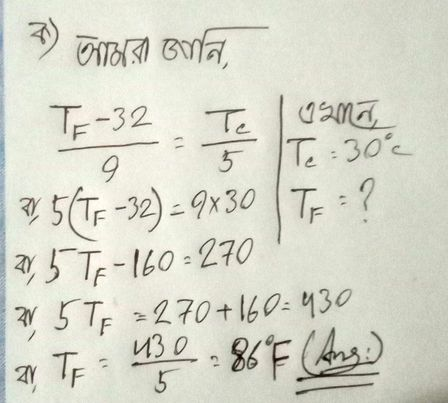 ক) আমরা জানি,
(T_F - 32)/9 = T_c/5
বা, 5(T_F - 32) = 9×30
বা, 5T_F - 160 = 270
বা, 5T_F = 270 + 160 = 430
বা, T_F = 430/5 = 86°F (Ans:)
এখানে,
T_c = 30°c
T_F = ?